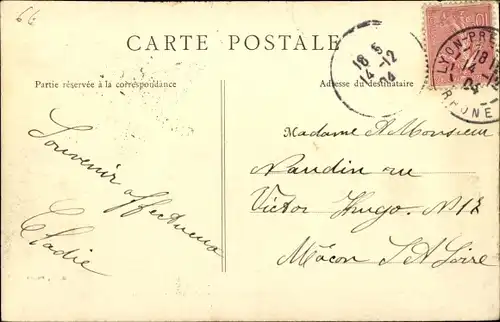 66
CARTE POSTALE
Partie réservée à la correspondance
Adresse du destinataire
18 5
14-12
04
LYON-
18
14-12
04
RHONE
10
Souvenir
affectueux
Cladie
Madame & Monsieur
Naudin rue
Victor Hugo. N12
Mâcon S & Loire